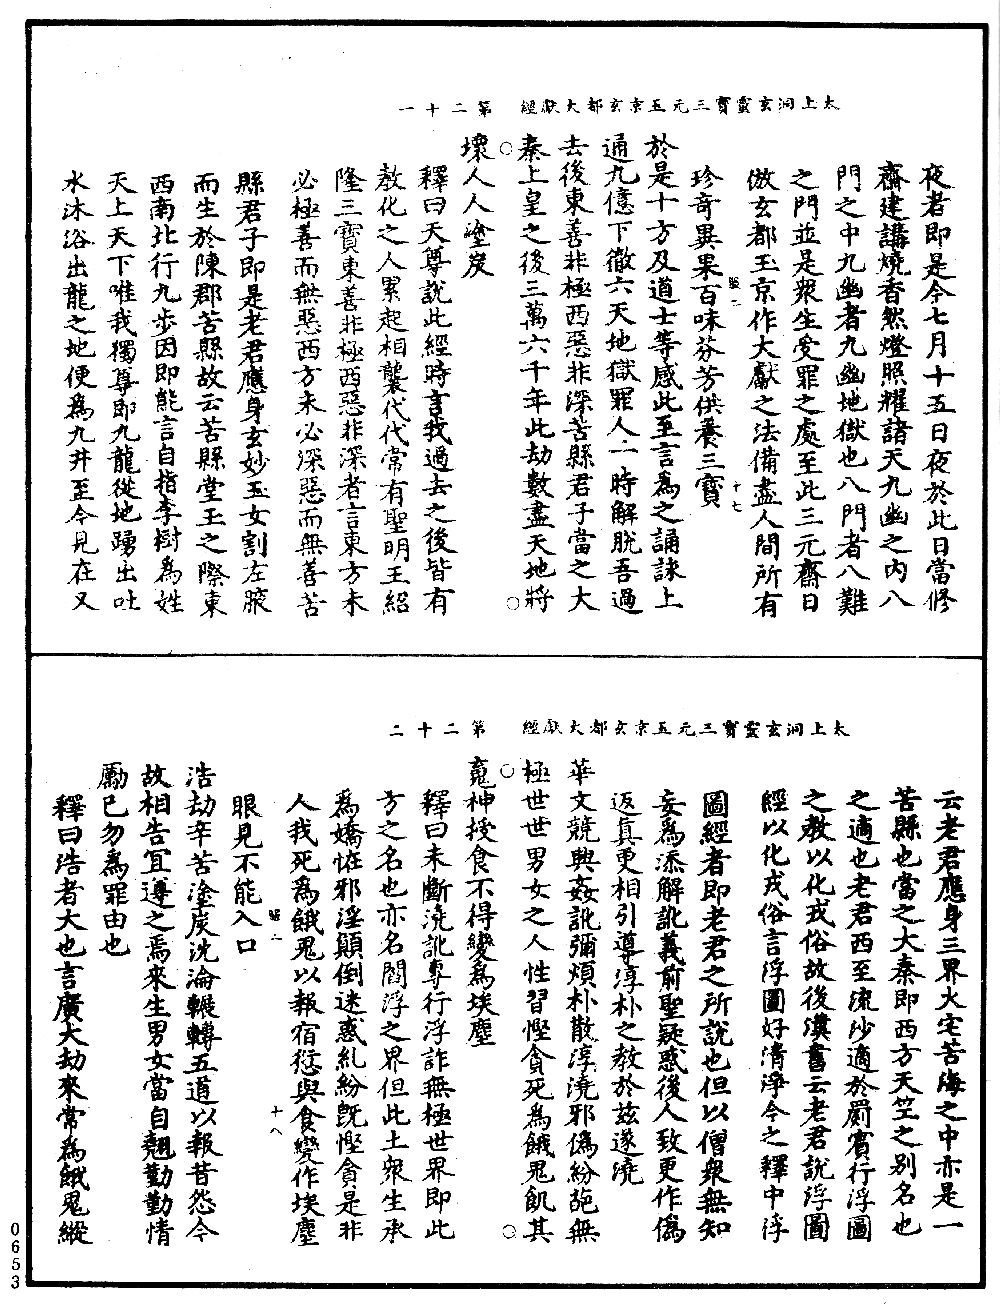 太上洞玄靈寶三元玉京玄都大獻經　第二十一
夜者即是今七月十五日夜於此日當修
齋建講燒香然燈照耀諸天九幽之内八
門之中九幽者九幽地獄也八門者八難
之門並是衆生受罪之處至此三元齋日
倣玄都玉京作大獻之法備盡人間所有
珍奇異果百味芬芳供養三寶
十七
於是十方及道士等感此至言爲之誦詠上
通九億下徹六天地獄罪人一時解脱吾過
去後東善非極西惡非深苦縣君子當之大
秦上皇之後三萬六千年此劫數盡天地將
壞人人塗炭
釋曰天尊説此經時言我過去之後皆有
教化之人累起相襲代代常有聖明王紹
隆三寶東善非極西惡非深者言東方未
必極善而無惡西方未必深惡而無善苦
縣君子即是老君應身玄妙玉女割左腋
而生於陳郡苦縣故云苦縣堂王之際東
西南北行九步因即能言自指李樹爲姓
天上天下唯我獨尊即九龍從地踴出吐
水沐浴出龍之地便爲九井至今見在又
太上洞玄靈寶三元玉京玄都大獻經　第二十二
云老君應身三界火宅苦海之中亦是一
苦縣也當之大秦即西方天竺之别名也
之適也老君西至流沙適於罽賓行浮圖
之教以化戎俗故後漢書云老君説浮圖
經以化戎俗言浮圖好清淨今之釋中浮
圖經者即老君之所説也但以僧衆無知
妄爲添解訛義前聖疑惑後人致更作僞
返真更相引導淳朴之教於兹遂澆
華文競興姦訛彌煩朴散淳澆邪僞紛葩無
極世世男女之人性習慳貪死爲餓鬼飢其
鬼神授食不得變爲埃塵
釋曰未斷澆訛專行浮詐無極世界即此
方之名也亦名閻浮之界但此土衆生承
爲嬌怪邪淫顛倒迷惑糺紛旣慳貪是非
人我死爲餓鬼以報宿愆與食變作埃塵
十八
眼見不能入口
浩劫辛苦塗炭沈淪輾轉五道以報昔怨今
故相告冝遵之焉來生男女當自翹勤勤情
勵已勿爲罪由也
釋曰浩者大也言廣大劫來常爲餓鬼縱
0653